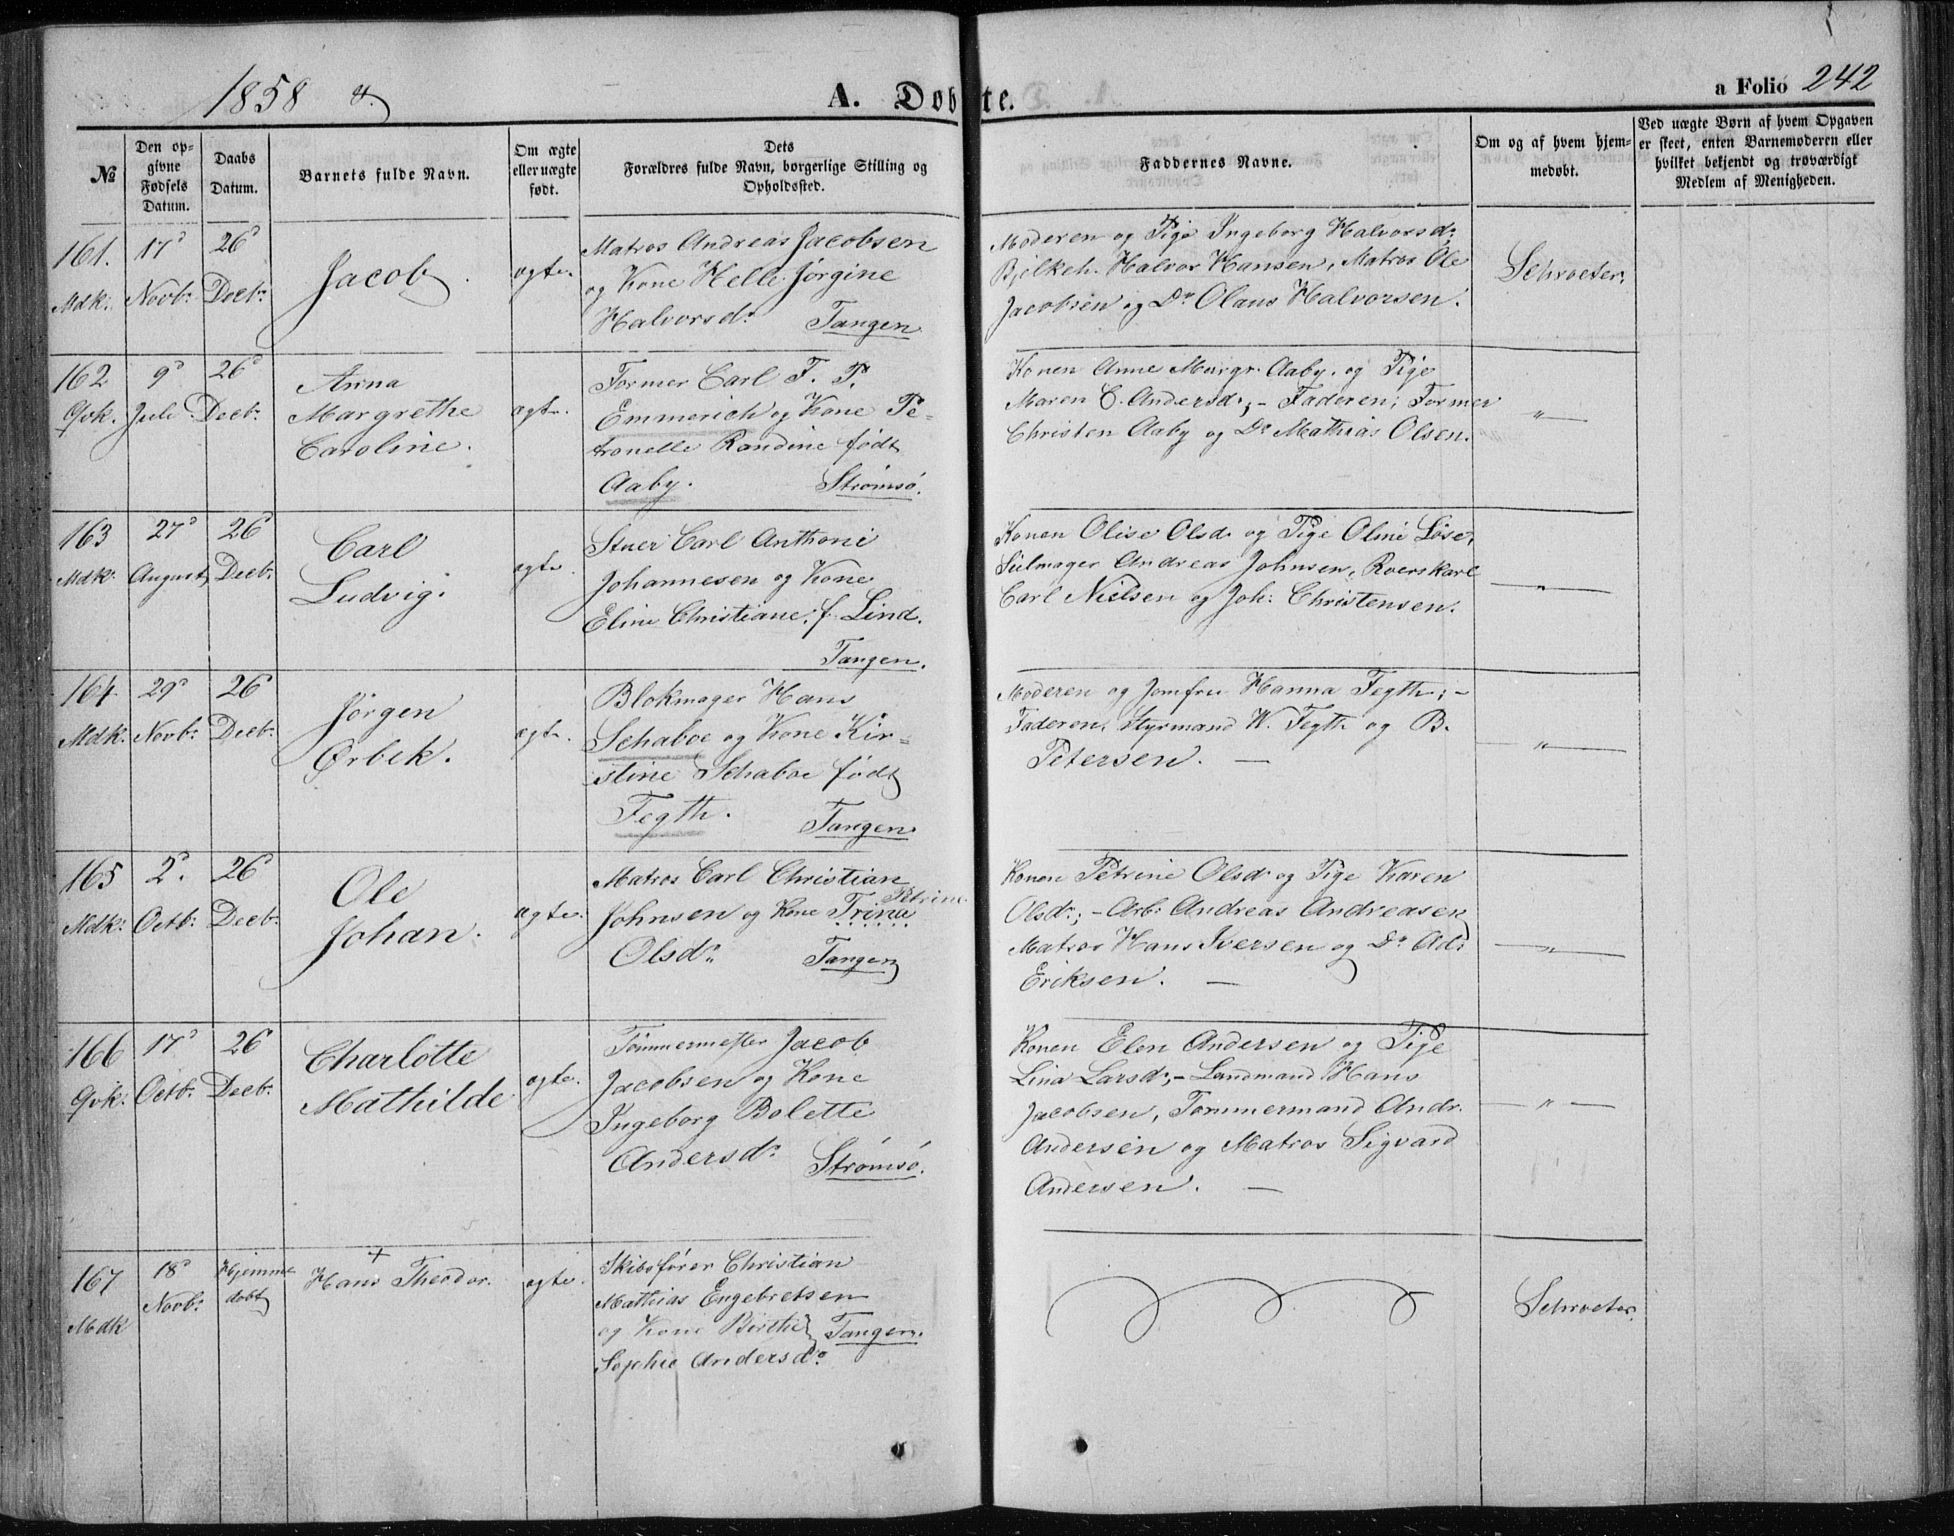 1858
A. Døbte.
a Folio 242
№
Den opgivne Fødsels Datum.
Daabs Datum.
Barnets fulde Navn.
Om ægte eller uægte født.
Dets Forældres fulde Navn, borgerlige Stilling og Opholdssted.
Faddernes Navne.
Om og af hvem hjemmedøbt.
Ved uægte Børn af hvem Opgaven er skeet, enten Barnemoderen eller hvilket bekjendt og troværdigt Medlem af Menigheden.
161. Mdk.
17d Novbr.
26d Decbr.
Jacob
ægte.
Matros Andreas Jacobsen
og Kone Helle Jørgine
Halvorsdr. Tangen
Moderen og Pige Ingeborg Halvorsdr.
Bjelkeh. Halvor Hansen, Matros Ole
Jacobsen og Do Olaus Halvorsen.
Schroeter.
162 Qvk.
9d Juli
26d Decbr.
Anna
Margrethe
Caroline.
ægte.
Former Carl F. P.
Emmerich og Kone Pe-
tronelle Randine født
Aaby. Strømsø.
Konen Anne Margr. Aaby. og Pige
Maren C. Andersdr; - Faderen; Former
Christen Aaby og Do Mathias Olsen.
"
163 Mdk.
27d August
26d Decbr.
Carl
Ludvig.
ægte.
Stuer Carl Anthoni
Johannesen og Kone
Eline Christiane. f. Lind.
Tangen.
Konen Olise Olsdr og Pige Oline Løse,
Seilmager Andreas Johnsen, Roerskarl
Carl Nielsen og Joh: Christensen.
"
164. Mdk.
29d Novbr.
26d Decbr.
Jørgen
Ørbek.
ægte.
Blokmager Hans
Schaboe og Kone Kir-
stine Schaboe født
Fegth. Tangen
Moderen og Jomfru Hanna Fegth; -
Faderen, Styrmand W. Fegth og B.
Petersen. -
"
165 Mdk.
2d. Octbr.
26d Decbr.
Ole
Johan.
ægte.
Matros Carl Christian
Petrine
Johnsen og Kone Trine
Olsdr. Tangen
Konen Petrine Olsdr og Pige Karen
Olsdr; - Arbr Andreas Andreasen
Matros Hans Iversen og Do Ad:
Eriksen. -
"
166 Qvk.
17d Octbr.
26d Decbr.
Charlotte
Mathilde
ægte.
Tømmermester Jacob
Jacobsen og Kone
Ingeborg Bolette
Andersdr. Strømsø.
Konen Elen Andersen og Pige
Lina Larsdr; - Landmand Hans
Jacobsen, Tømmermand Andr.
Andersen og Matros Sigvard
Andersen. -
"
167 Mdk
18d Novbr.
Hjemme døbt
+
Hans Theodor.
ægte.
Skibsfører Christian
Mathias Engebretsen
og Kone Birthe Tangen.
Sophie Andersdr.
Schroeter.